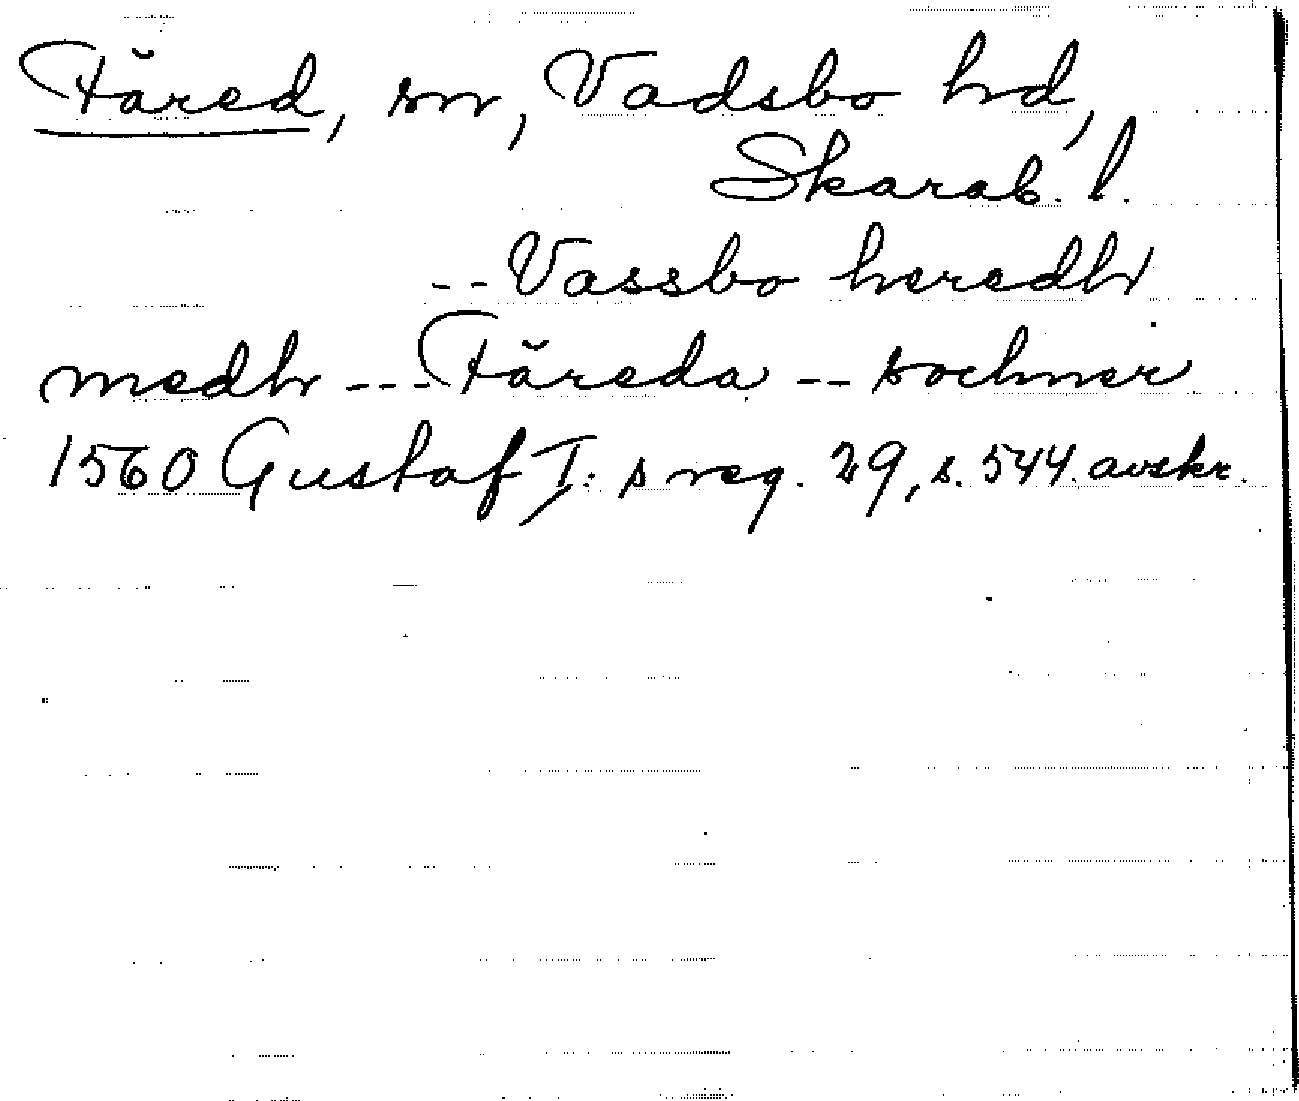 Färed, sn, Vadsbo hd,
Skarab. l.
-- Vassbo heredh
medh --- Färeda -- sochner
1560 Gustaf I:s reg. 29, s. 544. avskr.